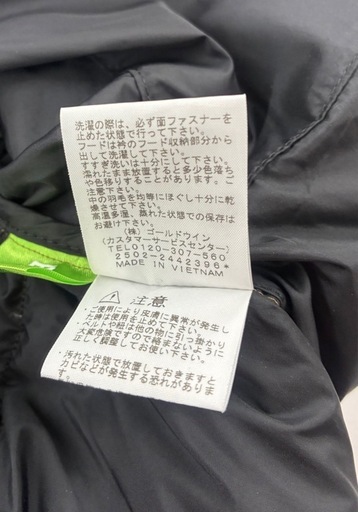 洗濯の際は、必ず面ファスナーを
止めた状態で行って下さい。
フードは衿のフード収納部分から
出して洗濯して下さい。
すすぎ洗いは十分にして下さい。
濡れたまま放置すると多少色落ち
や色移りすることがあります。
中の羽毛を均等にほぐし十分に乾
燥させて下さい。
高温多湿、蒸れた状態での保存は
お避け下さい。
(株)ゴールドウイン
(カスタマーサービスセンター)
TEL0120-307-560
2502-2442396*
MADE IN VIETNAM
注意
ご使用により皮膚に異常が発生し
た時は使用を止めて下さい。
ベルトや紐は他の物に引っ掛かり
大変危険ですので絡まないように
正しく調整してご使用下さい。
汚れた状態で放置しておきますと
カビなどが発生する恐れがありま